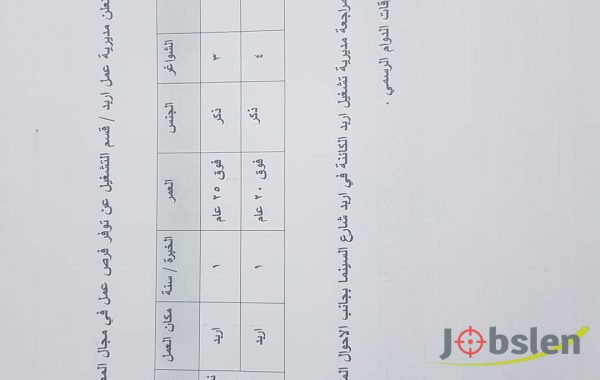 تعلن مديرية عمل اربد / قسم التشغيل عن توفر فرص عمل في مجال
الشواغر الجنس العمر الخبرة / سنة مكان العمل
٣ ذكر فوق ٢٥ عام ١ اربد
٤ ذكر فوق ٢٠ عام ١ اربد
مراجعة مديرية تشغيل اربد الكائنة في اربد شارع السينما بجانب الاحوال
الدوام الرسمي .
Jobslen